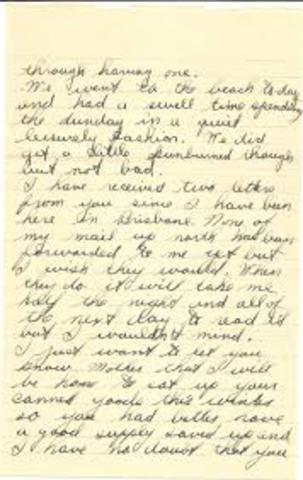 through having one.
We went to the beach today
and had a swell time spending
the sunday in a quiet
leisurely fashion. We did
get a little sunburned though
but not bad.
I have received two letters
from you since I have been
here in Brisbane None of
my mail up north has been
forwarded to me yet but
I wish they would. When
they do it will take me
half the night and all of
the next day to read it
but I wouldn't mind.
I just want to let you
know Mother that I will
be home to eat up your
canned goods this winter
so you had better have
a good supply saved up and
I have no doubt that you